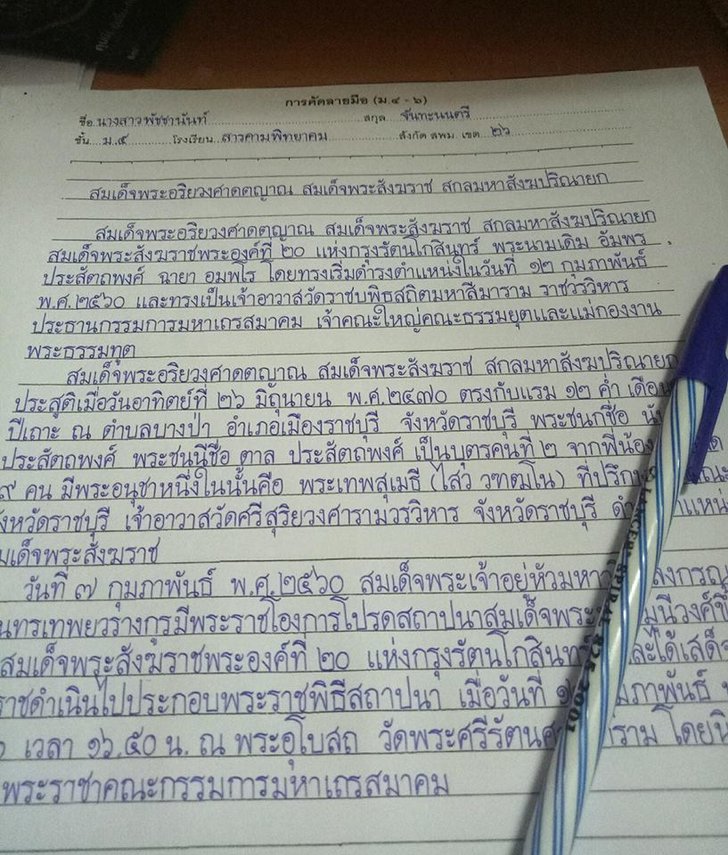 การคัดลายมือ (ม.๔ - ๖)
ชื่อ นางสาวพัชชานันท์ สกุล จันทะนนตรี
ชั้น ม.๕ โรงเรียน สารคามพิทยาคม สังกัด สพม. เขต ๒๖
สมเด็จพระอริยวงศาคตญาณ สมเด็จพระสังฆราช สกลมหาสังฆปริณายก
สมเด็จพระอริยวงศาคตญาณ สมเด็จพระสังฆราช สกลมหาสังฆปริณายก
สมเด็จพระสังฆราชพระองค์ที่ ๒๐ แห่งกรุงรัตนโกสินทร์ พระนามเดิม อัมพร
ประสัตถพงศ์ ฉายา อมฺพโร โดยทรงเริ่มดำรงตำแหน่งในวันที่ ๑๒ กุมภาพันธ์
พ.ศ.๒๕๖๐ และทรงเป็นเจ้าอาวาสวัดราชบพิธสถิตมหาสีมาราม ราชวรวิหาร
ประธานกรรมการมหาเถรสมาคม เจ้าคณะใหญ่คณะธรรมยุตและแม่กองงาน
พระธรรมทูต
สมเด็จพระอริยวงศาคตญาณ สมเด็จพระสังฆราช สกลมหาสังฆปริณายก
ประสูติเมื่อวันอาทิตย์ที่ ๒๖ มิถุนายน พ.ศ.๒๔๗๐ ตรงกับแรม ๑๒ ค่ำ เดือน
ปีเถาะ ณ ตำบลบางป่า อำเภอเมืองราชบุรี จังหวัดราชบุรี พระชนกชื่อ
ประสัตถพงศ์ พระชนนีชื่อ ตาล ประสัตถพงศ์ เป็นบุตรคนที่ ๒ จากพี่น้อง
๙ คน มีพระอนุชาหนึ่งในนั้นคือ พระเทพสุเมธี (ไสว วฑฺฒโน)
ังหวัดราชบุรี เจ้าอาวาสวัดศรีสุริยวงศารามวรวิหาร จังหวัดราชบุรี
มเด็จพระสังฆราช
วันที่ ๗ กุมภาพันธ์ พ.ศ.๒๕๖๐ สมเด็จพระเจ้าอยู่หัวมหา ลงกรณ
นทรเทพยวรางกูรมีพระราชโองการโปรดสถาปนาสมเด็จพระ มุนีวงศ์ขึ้
สมเด็จพระสังฆราชพระองค์ที่ ๒๐ แห่งกรุงรัตนโกสินทร์ ละได้เสด็จ
ราชดำเนินไปประกอบพระราชพิธีสถาปนา เมื่อวันที่ ๑ มภาพันธ์
๐ เวลา ๑๖.๕๐ น. ณ พระอุโบสถ วัดพระศรีรัตนศ าราม โดยนิ
พระราชาคณะกรรมการมหาเถรสมาคม
LANCER SPIRAL 825